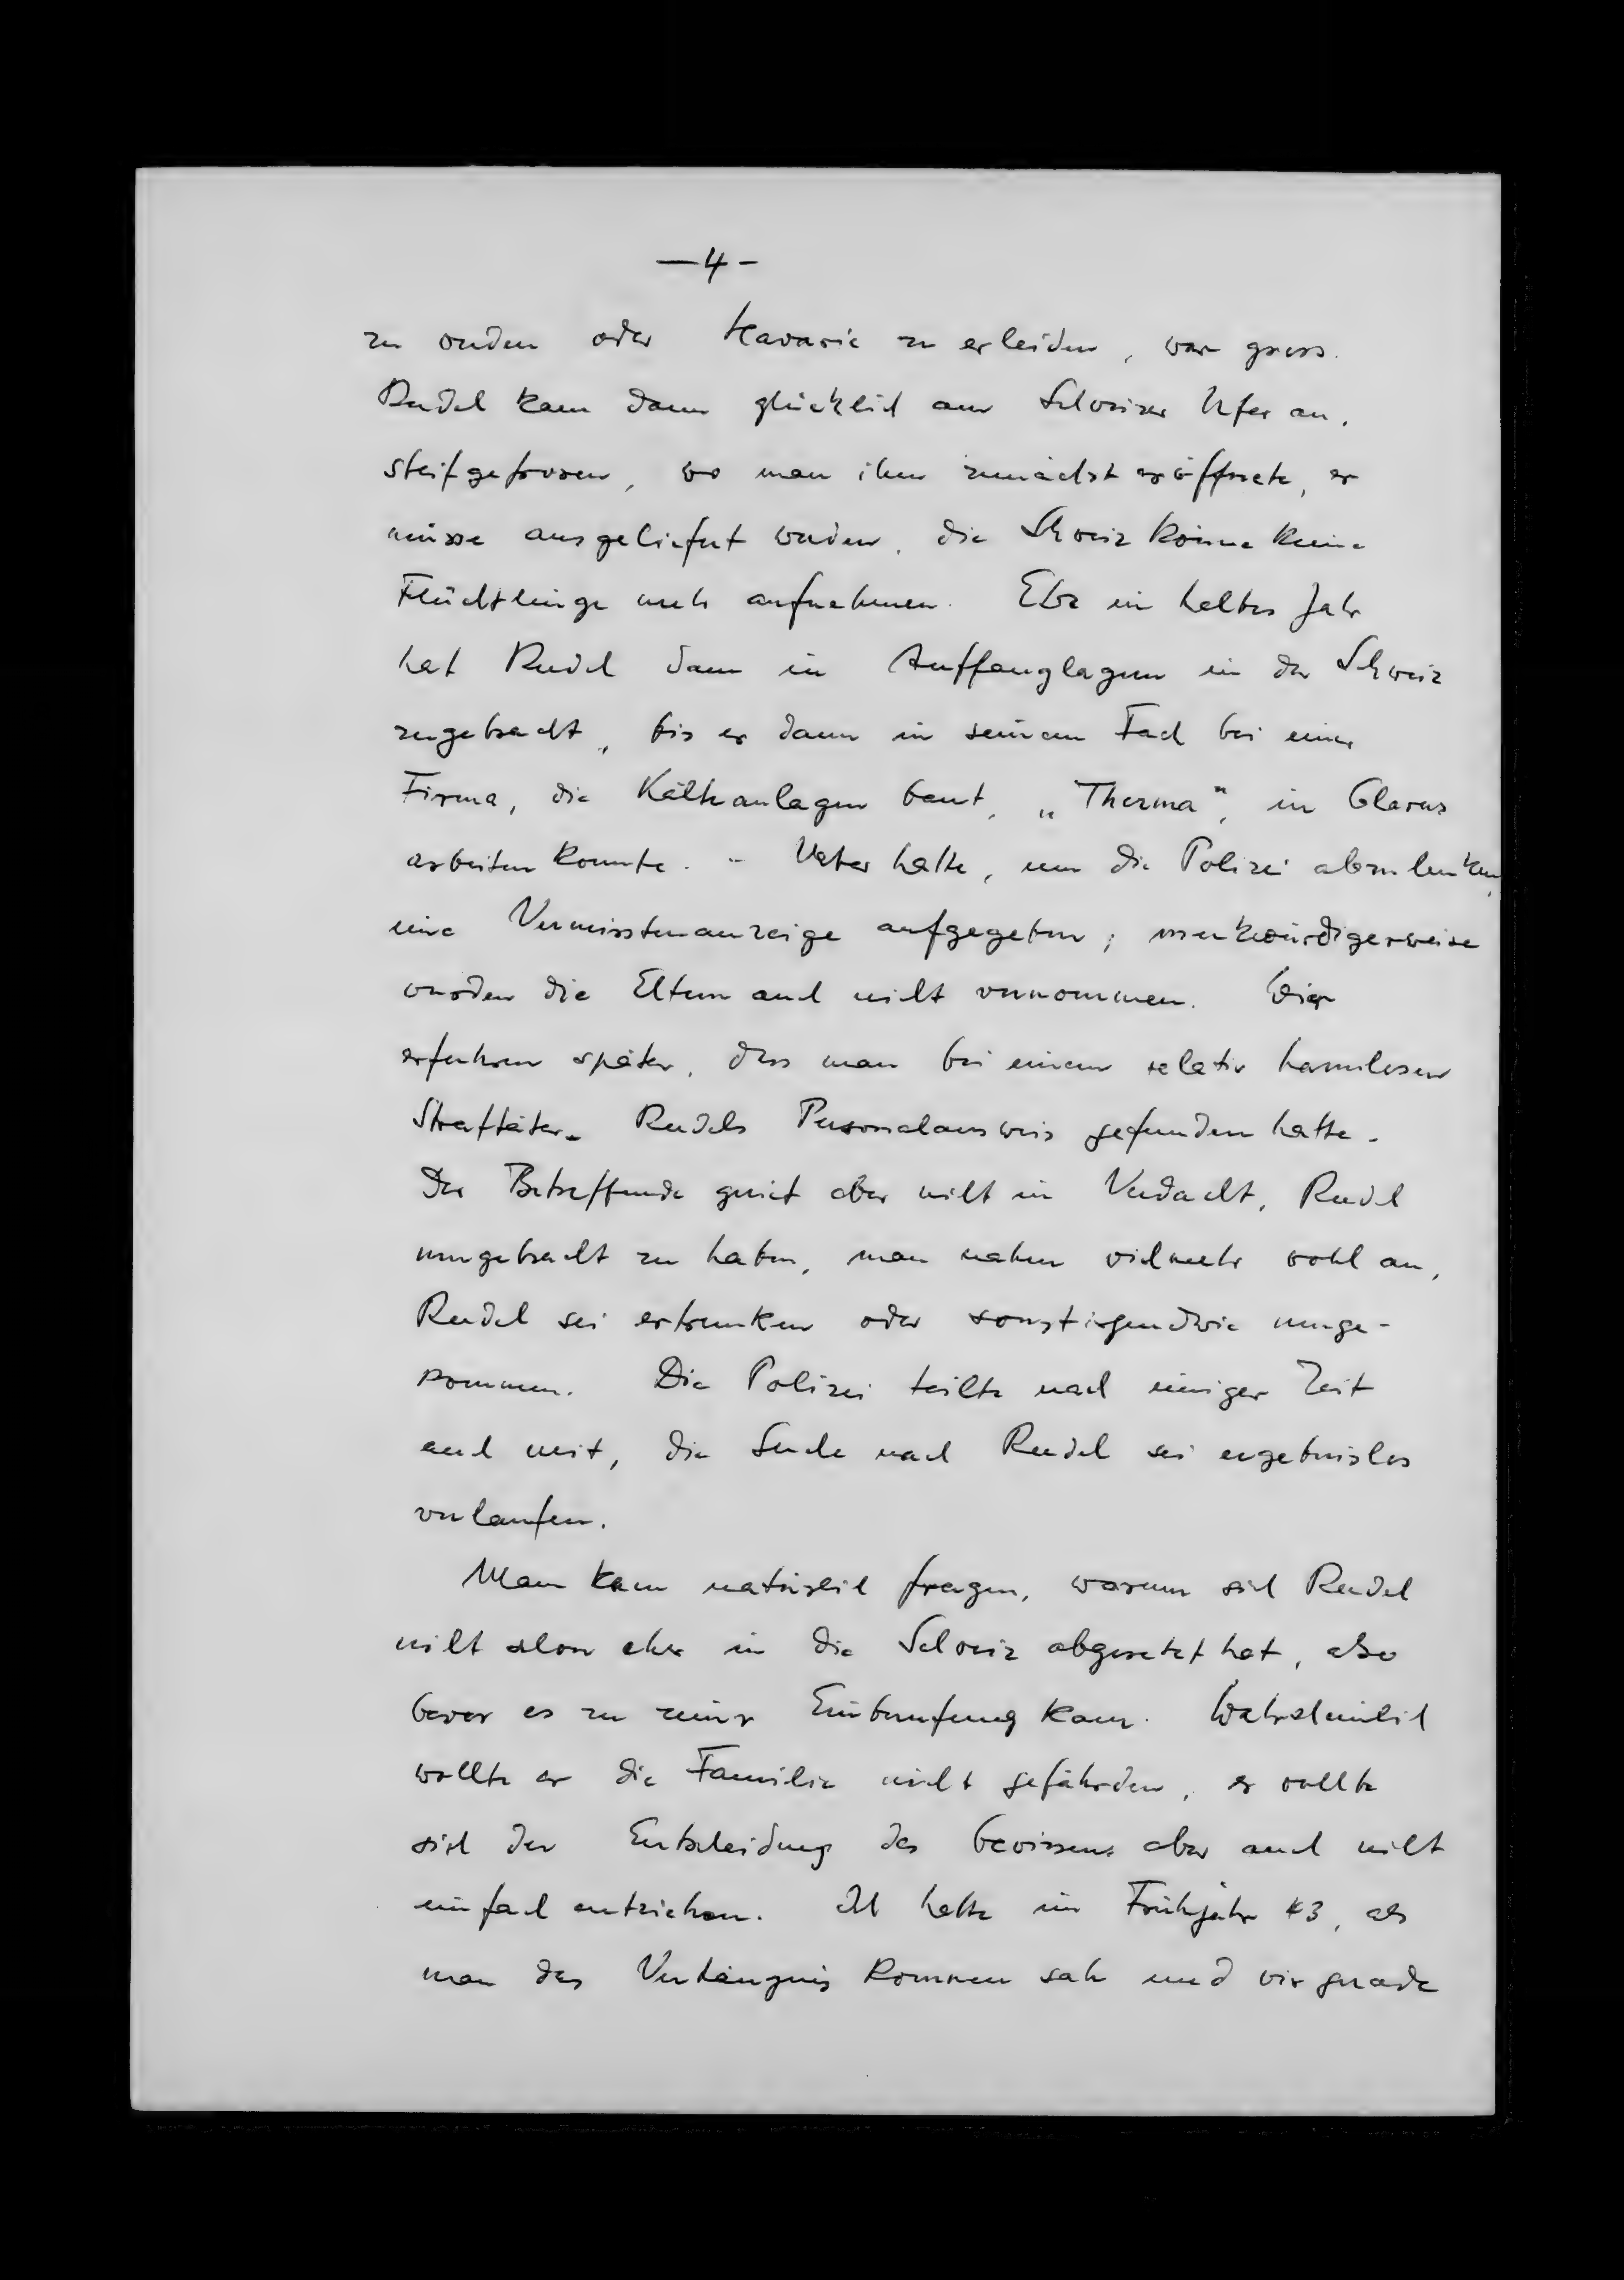 — 4 -
zu werden oder Havarie zu erleiden, war gross.
Rudel kam dann glücklich am Schweizer Ufer an,
steifgefroren, wo man ihm zunächst eröffnete, er
müsse ausgeliefert werden, die Schweiz könne keine
Flüchtlinge mehr aufnehmen. Etwa ein halbes Jahr
hat Rudel dann in Auffanglagern in der Schweiz
zugebracht, bis er dann in seinem Fach bei einer
Firma, die Kälteanlagen baut, „Therma", in Glarus
arbeiten konnte. - Vater hatte, um die Polizei abzulenken,
eine Vermisstenanzeige aufgegeben; merkwürdigerweise
wurden die Eltern auch nicht vernommen. Wir
erfuhren später, dass man bei einem relativ harmlosen
Straftäter Rudels Personalausweis gefunden hatte.
Der Betreffende geriet aber nicht in Verdacht, Rudel
umgebracht zu haben, man nahm vielmehr wohl an,
Rudel sei ertrunken oder sonst irgendwie umge-
kommen. Die Polizei teilte nach einiger Zeit
auch mit, die Suche nach Rudel sei ergebnislos
verlaufen.
Man kann natürlich fragen, warum sich Rudel
nicht schon eher in die Schweiz abgesetzt hat, also
bevor es zu seiner Einberufung kam. Wahrscheinlich
wollte er die Familie nicht gefährden, er wollte
sich der Entscheidung des Gewissens aber auch nicht
einfach entziehen. Ich hatte im Frühjahr 43, als
man das Verhängnis kommen sah und wir gerade